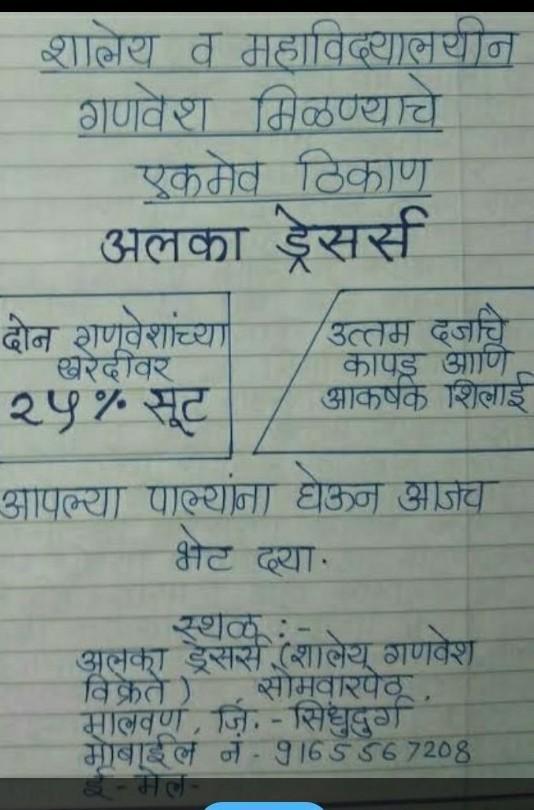 शालेय व महाविदयालयीन
गणवेश मिळण्याचे
एकमेव ठिकाण
अलका ड्रेसर्स
दोन गणवेशांच्या
खरेदीवर
२५% सूट
उत्तम दर्जाचे
कापड आणि
आकर्षक शिलाई
आपल्या पाल्यांना घेऊन आजच
भेट दया.
स्थळ :-
अलका ड्रेसर्स (शालेय गणवेश
विक्रेते) , सोमवारपेठ,
मालवण, जि. - सिंधुदुर्ग
मोबाईल नं - 9165567208
ई - मेल -